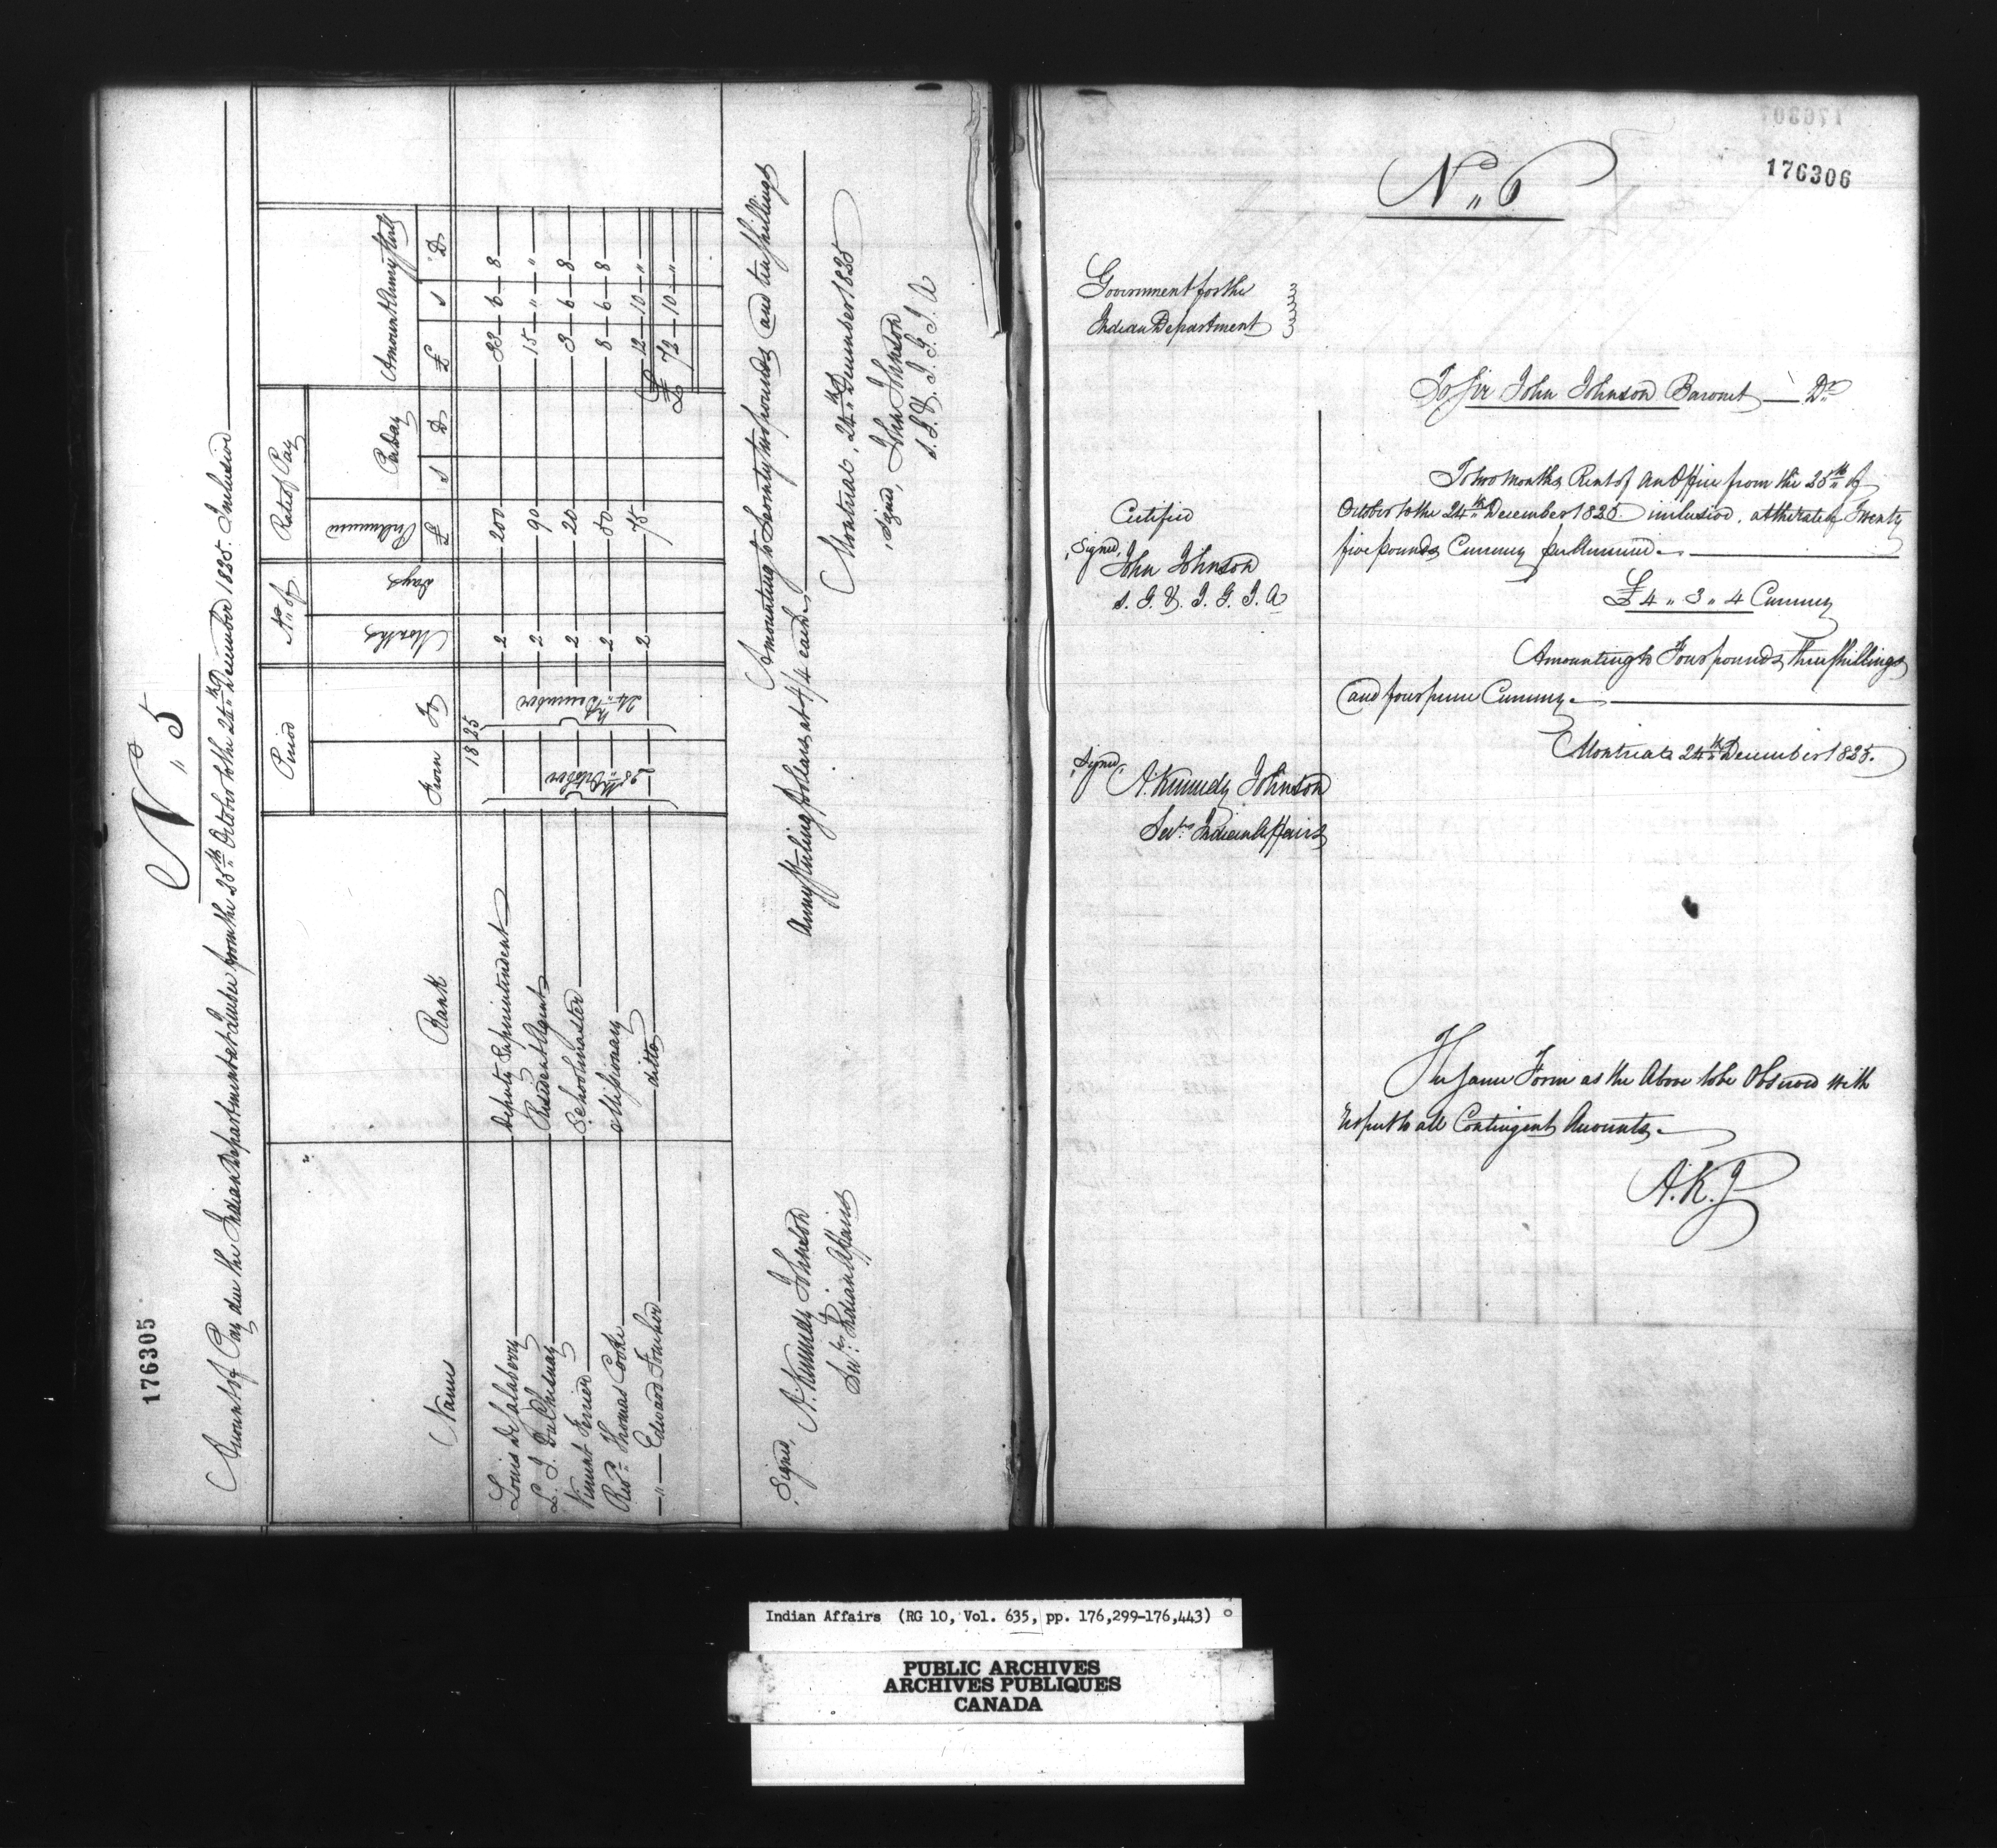 176305
N" 5
Account of Pay due the Indian Department at Quebec from the 25th October to the 24th December 1825. Inclusive
Names Rank Period No. of Rate of Pay Amount Army Sterlg
From To Months Days Per Annum Per Day
£ s D £ s D
1825
Louis De Salaberry Deputy Superintendent 2 200 33 6 8
L. J. DuChesnay Resident Agent 2 90 15 " "
Vincent Ferrier Schoolmaster 2 20 3 6 8
Revd Thomas Cooke Missionary 2 50 8 6 8
" Edward ditto 2 75 12 10 "
25th October 24th December
£ 72 10 "
Amounting to Seventy two pounds and ten shillings
Army Sterling Dollars at 4/4 each
Montreal, 24th December 1825
Signed, John Johnson
S. G. & I. G. I. A
Signed, A. Kennedy Johnson
Secy Indian Affairs
176306
N" 6
Government for the
Indian Department
To Sir John Johnson Baronet — Dr
To two months Rent of an Office from the 25th of
October to the 24th December 1825 inclusive. at the rate of Twenty
five pounds Currency per Annum
£4 " 3 " 4 Currency
Amounting to Four pounds, three shillings
and four pence Currency
Montreal 24th December 1825.
Certified
Signed,
John Johnson
S. G. & I. G. I. A
Signed,
A. Kennedy Johnson
Secy Indian Affairs
The same Form as the Above to be Observed with
respect to all Contingent Accounts
A. K. J
Indian Affairs (RG 10, Vol. 635, pp. 176,299-176,443)
PUBLIC ARCHIVES
ARCHIVES PUBLIQUES
CANADA